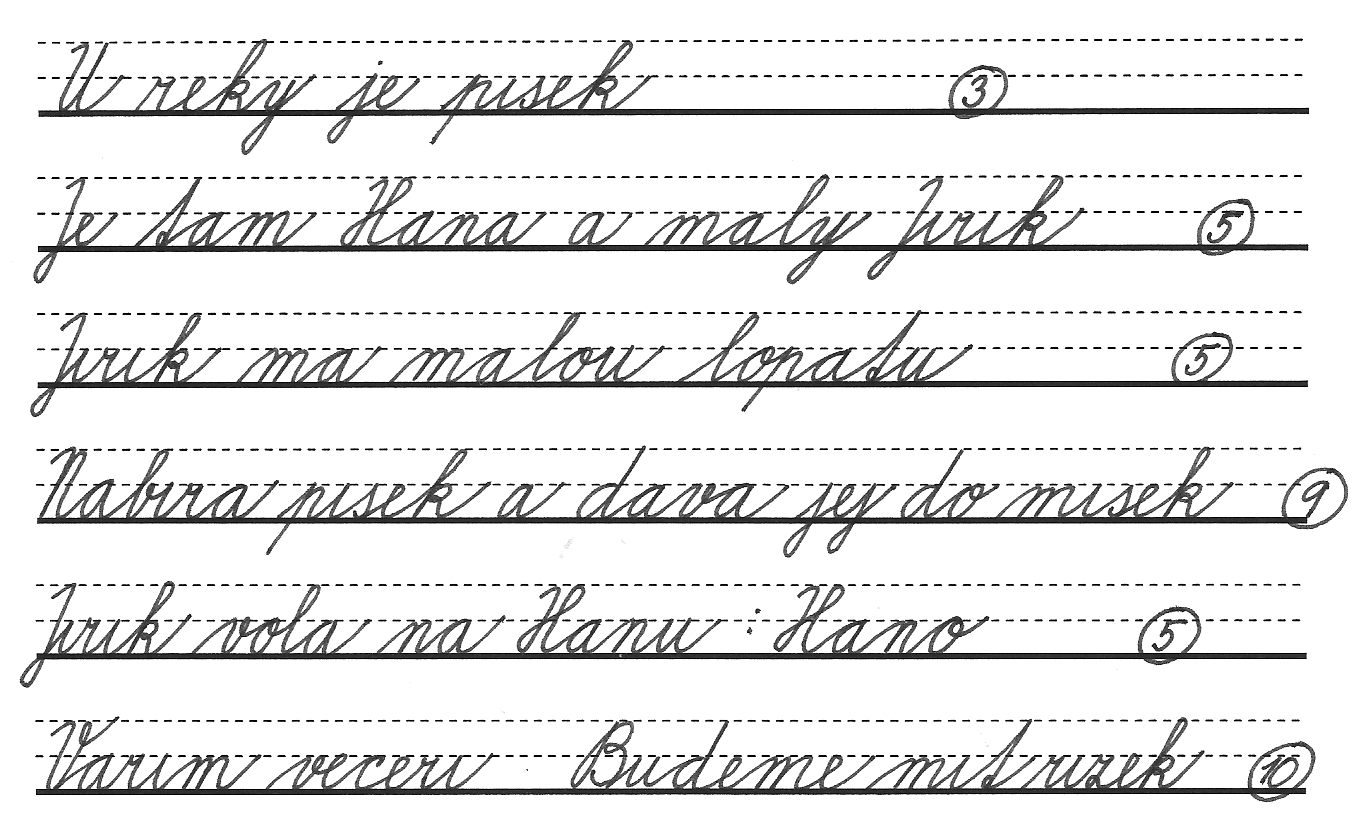 U reky je pisek 3
Je tam Hana a maly Jirik 5
Jirik ma malou lopatu 5
Nabira pisek a dava jej do misek 9
Jirik vola na Hanu : Hano 5
Varim veceri Budeme mit rizek 10